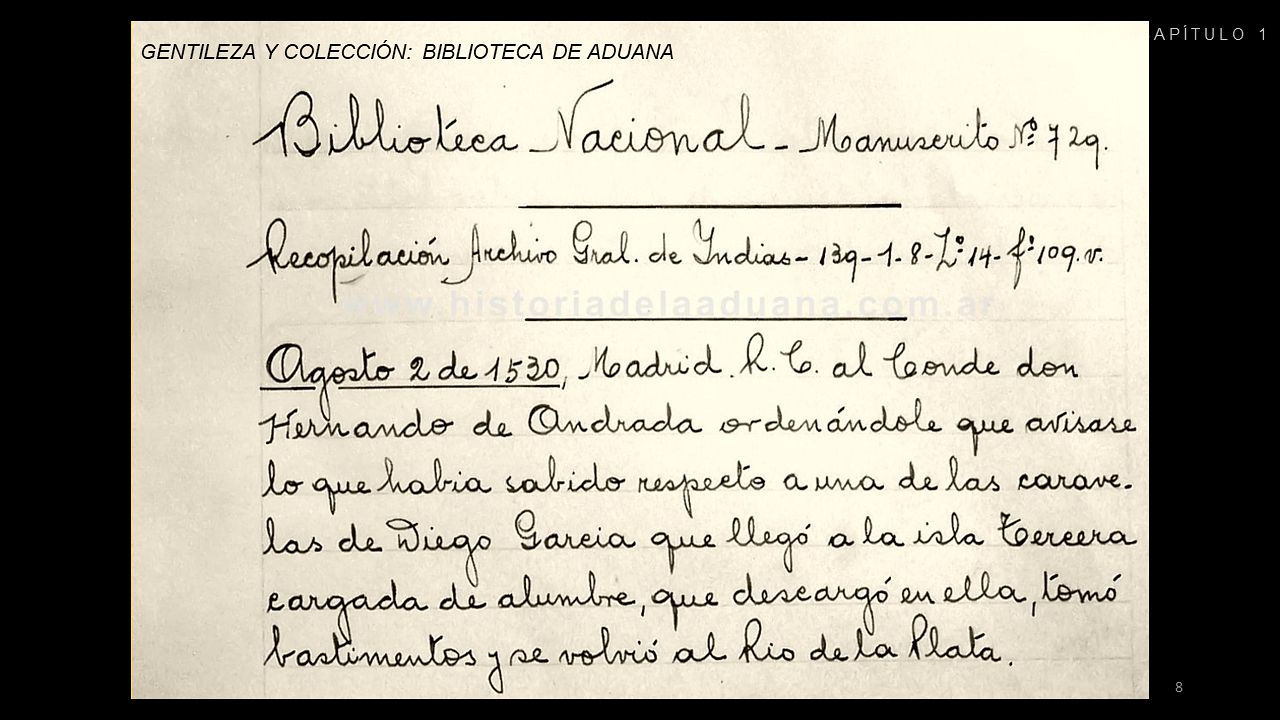 APÍTULO 1
GENTILEZA Y COLECCIÓN: BIBLIOTECA DE ADUANA
Biblioteca Nacional - Manuscrito Nº 729.
Recopilación Archivo Gral. de Indias - 139-1-8-Lº 14-fº 109.v.
www.historiadelaaduana.com.ar
Agosto 2 de 1530, Madrid. R. C. al Conde don
Hernando de Andrada ordenándole que avisase
lo que habia sabido respecto a una de las carave-
las de Diego Garcia que llegó a la isla Tercera
cargada de alumbre, que descargó en ella, tomó
bastimentos y se volvió al Rio de la Plata.
8